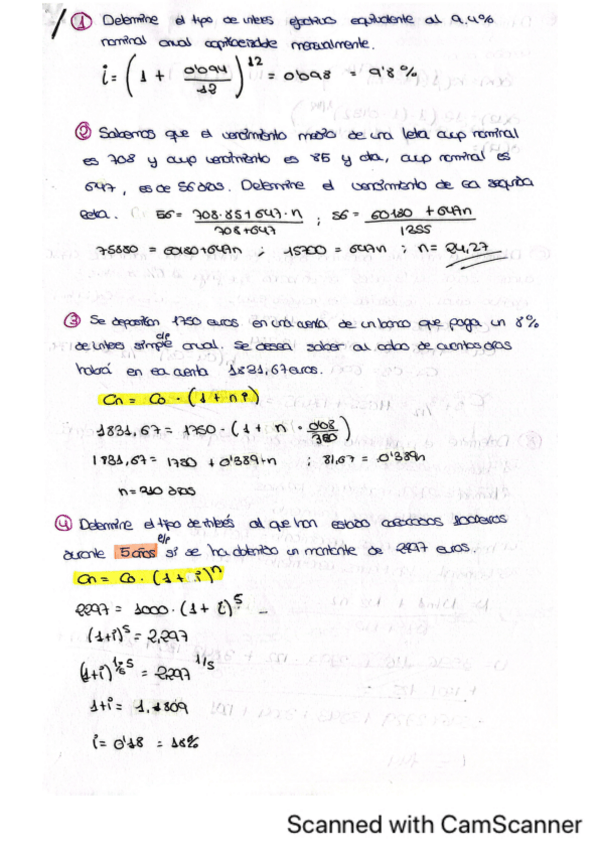 ① Determine el tipo de interés efectivo equivalente al 9.4%
nominal anual capitalizable mensualmente.
i = (1 + 0'094/12)^12 = 0'098 = 9'8%
② Sabemos que el vencimiento medio de una letra cuyo nominal
es 708 y cuyo vencimiento es 85 y otra, cuyo nominal es
647, es de 56 días. Determine el vencimiento de esa segunda
letra. 56 = 708·85+647·n / 708+647 ; 56 = 60180 + 647n / 1355
75880 = 60180+647n ; 15700 = 647n ; n = 24,27
③ Se depositan 1750 euros en una cuenta de un banco que paga un 8%
c/p
de interés simple anual. Se desea saber al cabo de cuantos días
habrá en esa cuenta 1831,67 euros.
Cn = Co · (1 + n i)
1831,67 = 1750 · (1 + n · 0'08/360)
1831,67 = 1750 + 0'389n ; 81,67 = 0'389n
n = 210 días
④ Determine el tipo de interés al que han estado colocados 1000 euros
c/p
durante 5 años si se ha obtenido un montante de 2297 euros.
Cn = Co · (1 + i)^n
2297 = 1000 · (1 + i)^5
(1+i)^5 = 2,297
(1+i)^1/5·5 = 2,297^1/5
1+i = 1,1809
i = 0'18 = 18%
Scanned with CamScanner